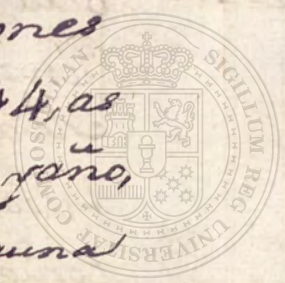 ones
4, as
yaño,
auna
SIGILLUM REG UNIVERSITAT COMPOSTELLAN